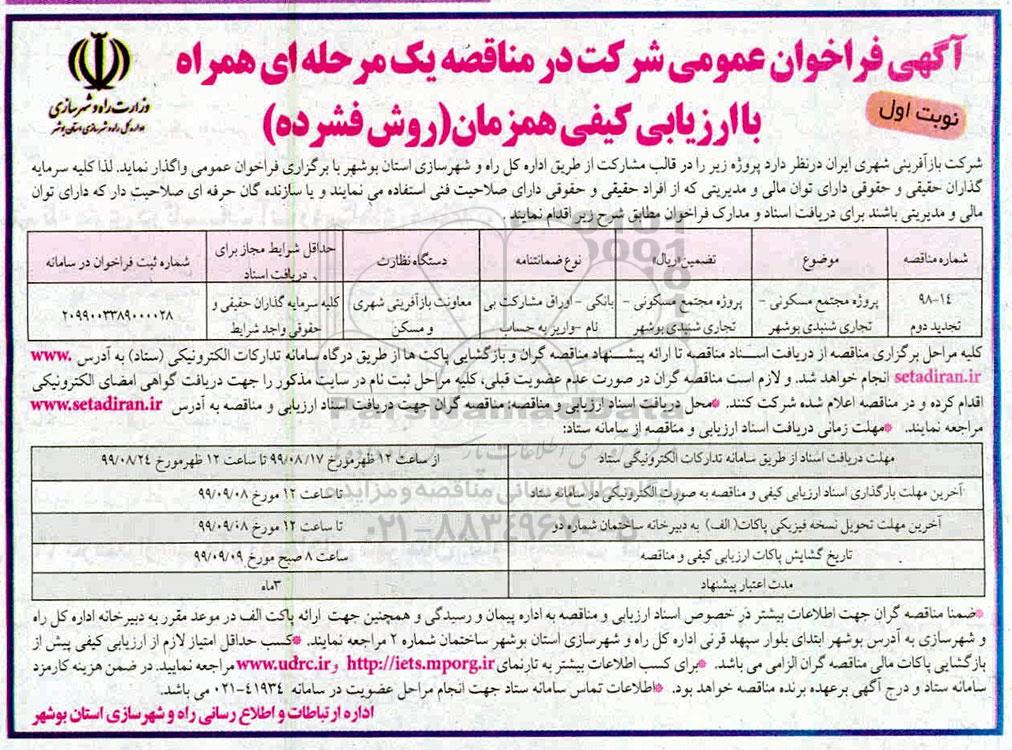 آگهی فراخوان عمومی شرکت در مناقصه یک مرحله ای همراه
با ارزیابی کیفی همزمان(روش فشرده)
نوبت اول
وزارت راه و شهرسازی
اداره کل راه و شهرسازی استان بوشهر
شرکت بازآفرینی شهری ایران درنظر دارد پروژه زیر را در قالب مشارکت از طریق اداره کل راه و شهرسازی استان بوشهر با برگزاری فراخوان عمومی واگذار نماید. لذا کلیه سرمایه
گذاران حقیقی و حقوقی دارای توان مالی و مدیریتی که از افراد حقیقی و حقوقی دارای صلاحیت فنی استفاده می نمایند و یا سازنده گان حرفه ای صلاحیت دار که دارای توان
مالی و مدیریتی باشند برای دریافت اسناد و مدارک فراخوان مطابق شرح زیر اقدام نمایند.
شماره مناقصه موضوع تضمین (ریال) نوع ضمانتنامه دستگاه نظارت حداقل شرایط مجاز برای دریافت اسناد شماره ثبت فراخوان در سامانه
۹۸-۱۴ تجدید دوم پروژه مجتمع مسکونی - تجاری شنبدی بوشهر پروژه مجتمع مسکونی - تجاری شنبدی بوشهر بانکی - اوراق مشارکت بی نام - واریز به حساب معاونت بازآفرینی شهری و مسکن کلیه سرمایه گذاران حقیقی و حقوقی واجد شرایط ۲۰۹۹۰۰۳۳۸۹۰۰۰۰۲۸
کلیه مراحل برگزاری مناقصه از دریافت اسناد مناقصه تا ارائه پیشنهاد مناقصه گران و بازگشایی پاکت ها از طریق درگاه سامانه تدارکات الکترونیکی (ستاد) به آدرس www.
setadiran.ir انجام خواهد شد. و لازم است مناقصه گران در صورت عدم عضویت قبلی، کلیه مراحل ثبت نام در سایت مذکور را جهت دریافت گواهی امضای الکترونیکی
اقدام کرده و در مناقصه اعلام شده شرکت کنند. *محل دریافت اسناد ارزیابی و مناقصه: مناقصه گران جهت دریافت اسناد ارزیابی و مناقصه به آدرس www.setadiran.ir
مراجعه نمایند. *مهلت زمانی دریافت اسناد ارزیابی و مناقصه از سامانه ستاد:
مهلت دریافت اسناد از طریق سامانه تدارکات الکترونیکی ستاد از ساعت ۱۲ ظهر مورخ ۹۹/۰۸/۱۷ تا ساعت ۱۲ ظهر مورخ ۹۹/۰۸/۲۴
آخرین مهلت بارگذاری اسناد ارزیابی کیفی و مناقصه به صورت الکترونیکی در سامانه ستاد تا ساعت ۱۲ مورخ ۹۹/۰۹/۰۸
آخرین مهلت تحویل نسخه فیزیکی پاکات (الف) به دبیرخانه ساختمان شماره دو تا ساعت ۱۲ مورخ ۹۹/۰۹/۰۸
تاریخ گشایش پاکات ارزیابی کیفی و مناقصه ساعت ۸ صبح مورخ ۹۹/۰۹/۰۹
مدت اعتبار پیشنهاد ۳ماه
*ضمنا مناقصه گران جهت اطلاعات بیشتر در خصوص اسناد ارزیابی و مناقصه به اداره پیمان و رسیدگی و همچنین جهت ارائه پاکت الف در موعد مقرر به دبیرخانه اداره کل راه
و شهرسازی به آدرس بوشهر ابتدای بلوار سپهد قرنی اداره کل راه و شهرسازی استان بوشهر ساختمان شماره ۲ مراجعه نمایند. *کسب حداقل امتیاز لازم از ارزیابی کیفی پیش از
بازگشایی پاکات مالی مناقصه گران الزامی می باشد. *برای کسب اطلاعات بیشتر به تارنمای http://iets.mporg.ir و www.udrc.ir مراجعه نمایید. در ضمن هزینه کارمزد
سامانه ستاد و درج آگهی برعهده برنده مناقصه خواهد بود. *اطلاعات تماس سامانه ستاد جهت انجام مراحل عضویت در سامانه ۴۱۹۳۴-۰۲۱ می باشد.
اداره ارتباطات و اطلاع رسانی راه و شهرسازی استان بوشهر